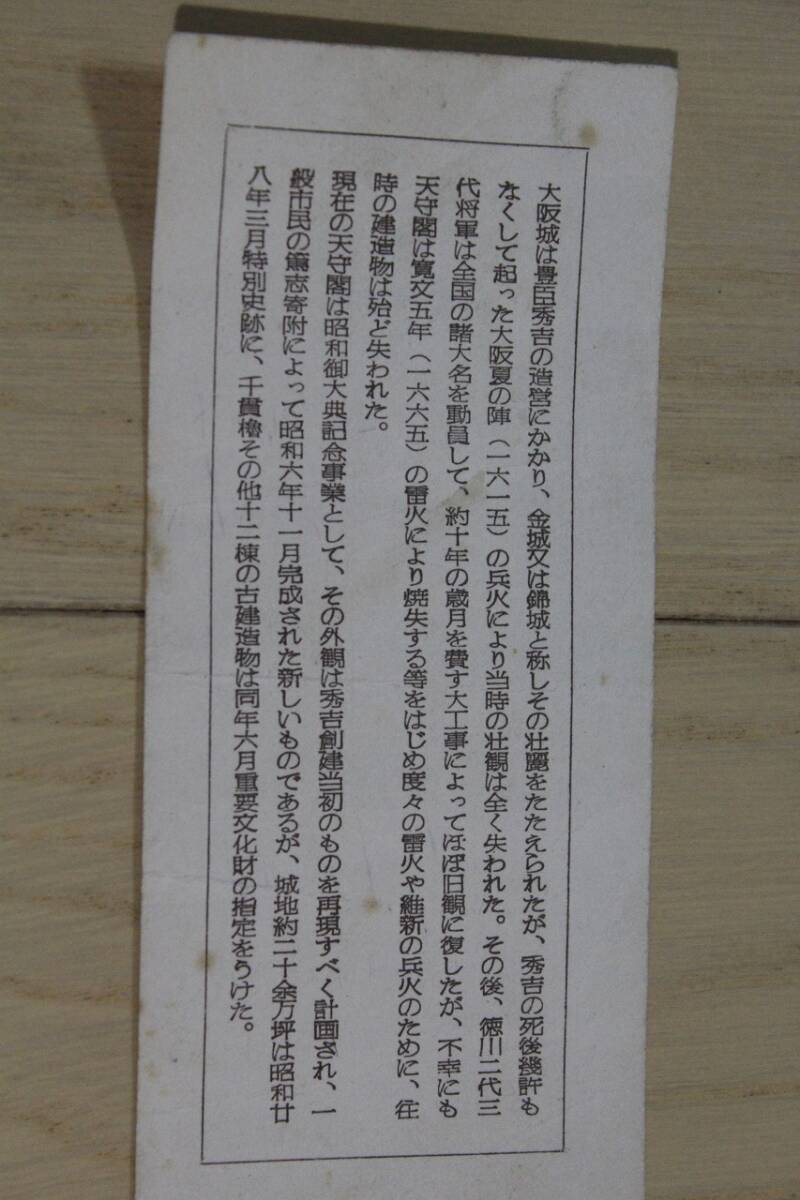 大阪城は豊臣秀吉の造営にかかり、金城又は錦城と称しその壮麗をたたえられたが、秀吉の死後幾許も
なくして起った大阪夏の陣（一六一五）の兵火により当時の壮観は全く失われた。その後、徳川二代三
代将軍は全国の諸大名を動員して、約十年の歳月を費す大工事によってほぼ旧観に復したが、不幸にも
天守閣は寛文五年（一六六五）の雷火により焼失する等をはじめ度々の雷火や維新の兵火のために、往
時の建造物は殆ど失われた。
現在の天守閣は昭和御大典記念事業として、その外観は秀吉創建当初のものを再現すべく計画され、一
般市民の篤志寄附によって昭和六年十一月完成された新しいものであるが、城地約二十余万坪は昭和廿
八年三月特別史跡に、千貫櫓その他十二棟の古建造物は同年六月重要文化財の指定をうけた。